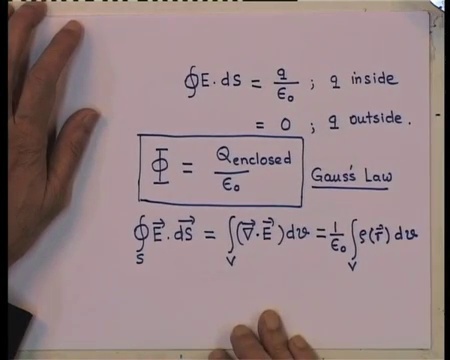 ∮E.ds = q/ε₀ ; q inside
= 0 ; q outside.
Φ = Qenclosed/ε₀
Gauss's Law
∮_S E⃗.dS⃗ = ∫_V (∇⃗.E⃗)dv = 1/ε₀ ∫_V ρ(r⃗) dv